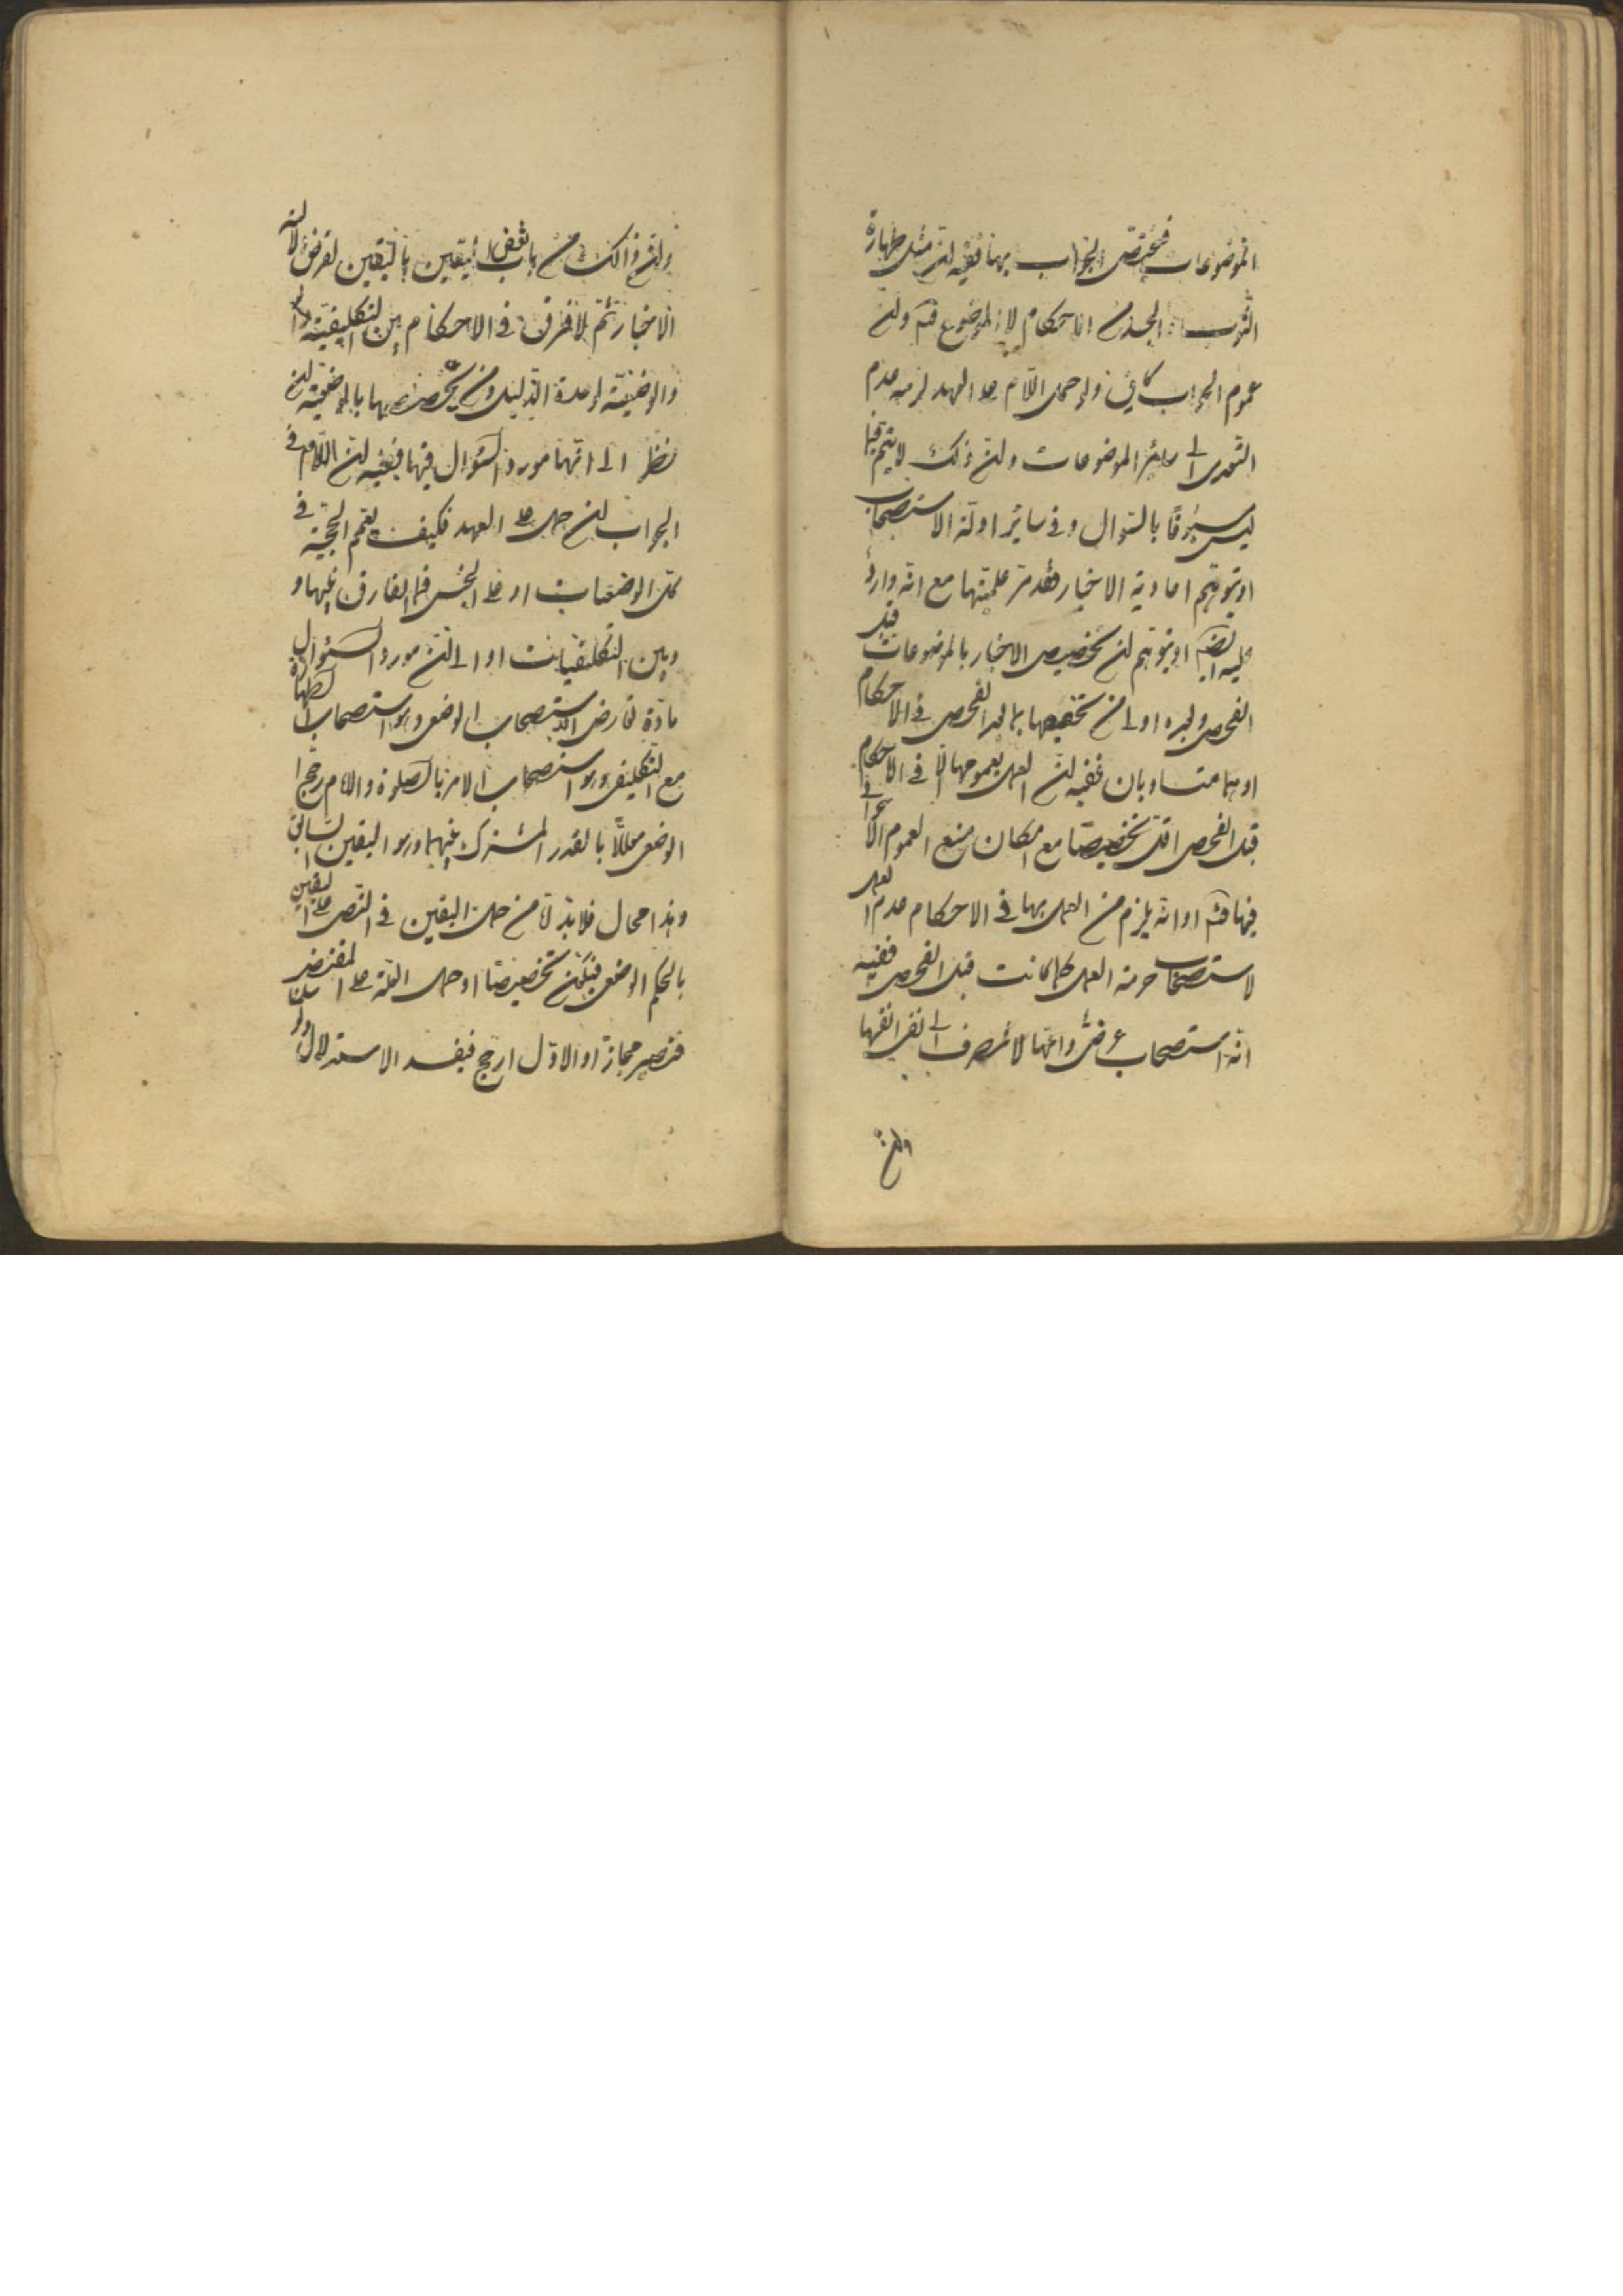 الموضوعات فيختص الجواب بها ففيه ان مثل طهارة
الثوب والجسد من الاحكام لا الموضوع فتم وان
عموم الجواب كاف ولو حمل اللام على العهد لزمه عدم
التعدى الى سائر الموضوعات وان ذلك لا يتم فيما
ليس مسبوقا بالسؤال وفى سائر ادلة الاستصحاب
او بتوهم احادية الاخبار فقد مر علميتها مع انه وارد
عليه ايضا او بتوهم ان تخصيص الاخبار بالموضوعات قبل
الفحص وبعده اولى من تخصيصها بما بعد الفحص فى الاحكام
او هما متساويان ففيه ان العمل بعمومها الا فى الاحكام
قبل الفحص اقل تخصيصا مع امكان منع العموم
فيها فتم او انه يلزم من العمل بها فى الاحكام عدم العمل
لاستصحاب حرمة العمل كما كانت قبل الفحص ففيه
انه استصحاب عرضى وانها لا تنصرف الى نفى انفسها
وان
وان ذلك من باب نقض اليقين باليقين لفرض دلالة
الاخبار ثم لا فرق فى الاحكام بين التكليفية
والوضعية لوحدة الدليل ومن يخصصها بالوضعية ان
نظر الى انها مورد السؤال فيها ففيه ان اللام فى
الجواب ان حمل على العهد فكيف يعم الحجية فى
كل الوضعيات او على الجنس فما الفارق بينها و
وبين التكليفيات او الى ان مورد السؤال
مادة تعارض الاستصحاب الوضعى وهو استصحاب الطهارة
مع التكليفى وهو استصحاب الامر بالصلوة والامام رجح
الوضعى معللا بالقدر المشترك بينهما وهو اليقين السابق
وهذا محال فلا بد لنا من حمل اليقين فى النص على اليقين
بالحكم الوضعى فيكون تخصيصا او حمل العلة على المقتضى
فتصير مجازا والاول ارجح فيفسد الاستدلال